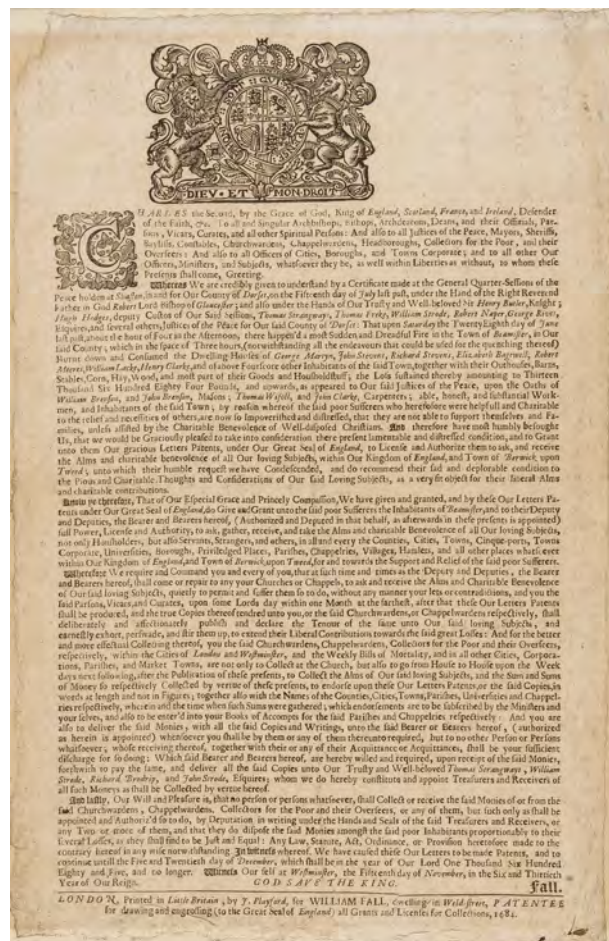 DIEV · ET MON · DROIT
CHARLES the Second, by the Grace of God, King of England, Scotland, France, and Ireland, Defender
of the Faith, &c. To all and singular Archbishops, Bishops, Archdeacons, Deans, and their Officials, Par-
sons, Vicars, Curates, and all other Spiritual Persons: And also to all Justices of the Peace, Mayors, Sheriffs,
Bayliffs, Constables, Churchwardens, Chappelwardens, Headboroughs, Collectors for the Poor, and their
Overseers: And also to all Officers of Cities, Boroughs, and Towns Corporate; and to all other Our
Officers, Ministers, and Subjects, whatsoever they be, as well within Liberties as without, to whom these
Presents shall come, Greeting.
Whereas We are credibly given to understand by a Certificate made at the General Quarter-Sessions of the
Peace holden at in and for Our County of Dorset, on the Fifteenth day of July last past, under the Hand of the Right Reverend
Father in God Robert Lord Bishop of Gloucester; and also under the Hands of Our Trusty and Well-beloved Sir Henry Butler, Knight;
Hugh Hodges, deputy Custos of Our Said Thomas Strangways, Thomas Freke, William Strode, Robert Naper, George
Esquires, and several others, Justices of the Peace for Our said County of Dorset: That upon Saturday the Twenty Eighth day of June
last past, about the hour of Four in the Afternoon, there happen'd a most Sudden and Dreadful Fire in the Town of Beamister, in Our
said County; which in the space of Three hours, (notwithstanding all the endeavours that could be used for the quenching thereof)
Burnt down and Consumed the Dwelling-Houses of George Martyn, John Stevens, Richard Stevens, Elizabeth Bagwell, Robert
Meeres, William Lacke, Henry Clarke, and of above Fourscore other Inhabitants of the said Town, together with their Outhouses, Barns,
Stables, Corn, Hay, Wood, and most part of their Goods and Householdstuff; the Loss sustained thereby amounting to Thirteen
Thousand Six Hundred Eighty Four Pounds, and upwards, as appeared to Our said Justices of the Peace, upon the Oaths of
William Branson, and John Branson, Masons; Thomas and John Clarke, Carpenters; able, honest, and substantial Work-
men, and Inhabitants of the said Town; by reason whereof the said poor Sufferers who heretofore were helpfull and Charitable
to the relief and necessities of others, are now so Impoverished and distressed, that they are not able to support themselves and Fa-
milies, unless assisted by the Charitable Benevolence of Well-disposed Christians. And therefore have most humbly besought
Us, that we would be Graciously pleased to take into consideration there present lamentable and distressed condition, and to Grant
unto them Our gracious Letters Patents, under Our Great Seal of England, to License and Authorize them to ask, and receive
the Alms and charitable benevolence of all Our loving Subjects, within Our Kingdom of England, and Town of Berwick upon
Tweed; unto which their humble request we have Condescended, and do recommend their sad and deplorable condition to
the Pious and Charitable Thoughts and Considerations of Our said Loving Subjects, as a very fit object for their liberal Alms
and charitable contributions.
Know ye therefore, That of Our Especial Grace and Princely Compassion, We have given and granted, and by these Our Letters Pa-
tents under Our Great Seal of England, do Give and Grant unto the said poor Sufferers the Inhabitants of Beamister, and to their Deputy
and Deputies, the Bearer and Bearers hereof, (Authorized and Deputed in that behalf, as afterwards in these presents is appointed)
full Power, License and Authority, to ask, gather, receive, and take the Alms and charitable Benevolence of all Our loving Subjects,
not only Housholders, but also Servants, Strangers, and others, in all and every the Counties, Cities, Towns, Cinque-ports, Towns
Corporate, Universities, Boroughs, Priviledged Places, Parishes, Chappelries, Villages, Hamlets, and all other places whatsoever
within Our Kingdom of England, and Town of Berwick upon Tweed, for and towards the Support and Relief of the said poor Sufferers.
Wherefore We require and Command you and every of you, that at such time and times as the Deputy and Deputies, the Bearer
and Bearers hereof, shall come or repair to any your Churches or Chappels, to ask and receive the Alms and Charitable Benevolence
of Our said loving Subjects, quietly to permit and suffer them so to do, without any manner your lets or contradictions, and you the
said Parsons, Vicars, and Curates, upon some Lords day within one Month at the farthest, after that these Our Letters Patents
shall be produced, and the true Copies thereof tendred unto you, or the said Churchwardens, or Chappelwardens respectively, shall
deliberately and affectionately publish and declare the Tenour of the same unto Our said loving Subjects, and
earnestly exhort, perswade, and stir them up, to extend their Liberal Contributions towards the said great Losses: And for the better
and more effectual Collecting thereof, you the said Churchwardens, Chappelwardens, Collectors for the Poor and their Overseers,
respectively, within the Cities of London and Westminster, and the Weekly Bills of Mortality, and in all other Cities, Corpora-
tions, Parishes, and Market Towns, are not only to Collect at the Church, but also to go from House to House upon the Week
days next following, after the Publication of these presents, to Collect the Alms of Our said loving Subjects, and the Sum and Sums
of Money so respectively Collected by vertue of these presents, to endorse upon these Our Letters Patents, or the said Copies, in
words at length and not in Figures; together also with the Names of the Counties, Cities, Towns, Parishes, Universities and Chappel-
ries respectively, wherein and the time when such Sums were gathered; which endorsements are to be subscribed by the Ministers and
your selves, and also to be enter'd into your Books of Accompts for the said Parishes and Chappelries respectively: And you are
also to deliver the said Monies, with all the said Copies and Writings, unto the said Bearer or Bearers hereof, (authorized
as herein is appointed) whensoever you shall be by them or any of them thereunto required, but to no other Person or Persons
whatsoever; whose receiving thereof, together with their or any of their Acquittance or Acquittances, shall be your sufficient
discharge for so doing: Which said Bearer and Bearers hereof, are hereby willed and required, upon receipt of the said Monies,
forthwith to pay the same, and deliver all the said Copies unto Our Trusty and Well-beloved Thomas Strangways, William
Strode, Richard Brodrip, and John Strode, Esquires; whom we do hereby constitute and appoint Treasurers and Receivers of
all such Moneys as shall be Collected by vertue hereof.
And lastly, Our Will and Pleasure is, that no person or persons whatsoever, shall Collect or receive the said Monies of or from the
said Churchwardens, Chappelwardens, Collectors for the Poor and their Overseers, or any of them, but such only as shall be
appointed and Authoriz'd so to do, by Deputation in writing under the Hands and Seals of the said Treasurers and Receivers, or
any Two or more of them, and that they do dispose the said Monies amongst the said poor Inhabitants proportionably to their
several Losses, as they shall find to be Just and Equal: Any Law, Statute, Act, Ordinance, or Provision heretofore made to the
contrary hereof in any wise notwithstanding. In witness whereof, We have caused these Our Letters to be made Patents, and to
continue untill the Five and Twentieth day of December, which shall be in the year of Our Lord One Thousand Six Hundred
Eighty and Five, and no longer. Witness Our self at Westminster, the Fifteenth day of November, in the Six and Thirtieth
Year of Our Reign. GOD SAVE THE KING. Fall.
LONDON, Printed in Little Britain, by J. Playford, for WILLIAM FALL, dwelling in Weld-street, PATENTEE
for drawing and engrossing (to the Great Seal of England) all Grants and Licenses for Collections, 1684.